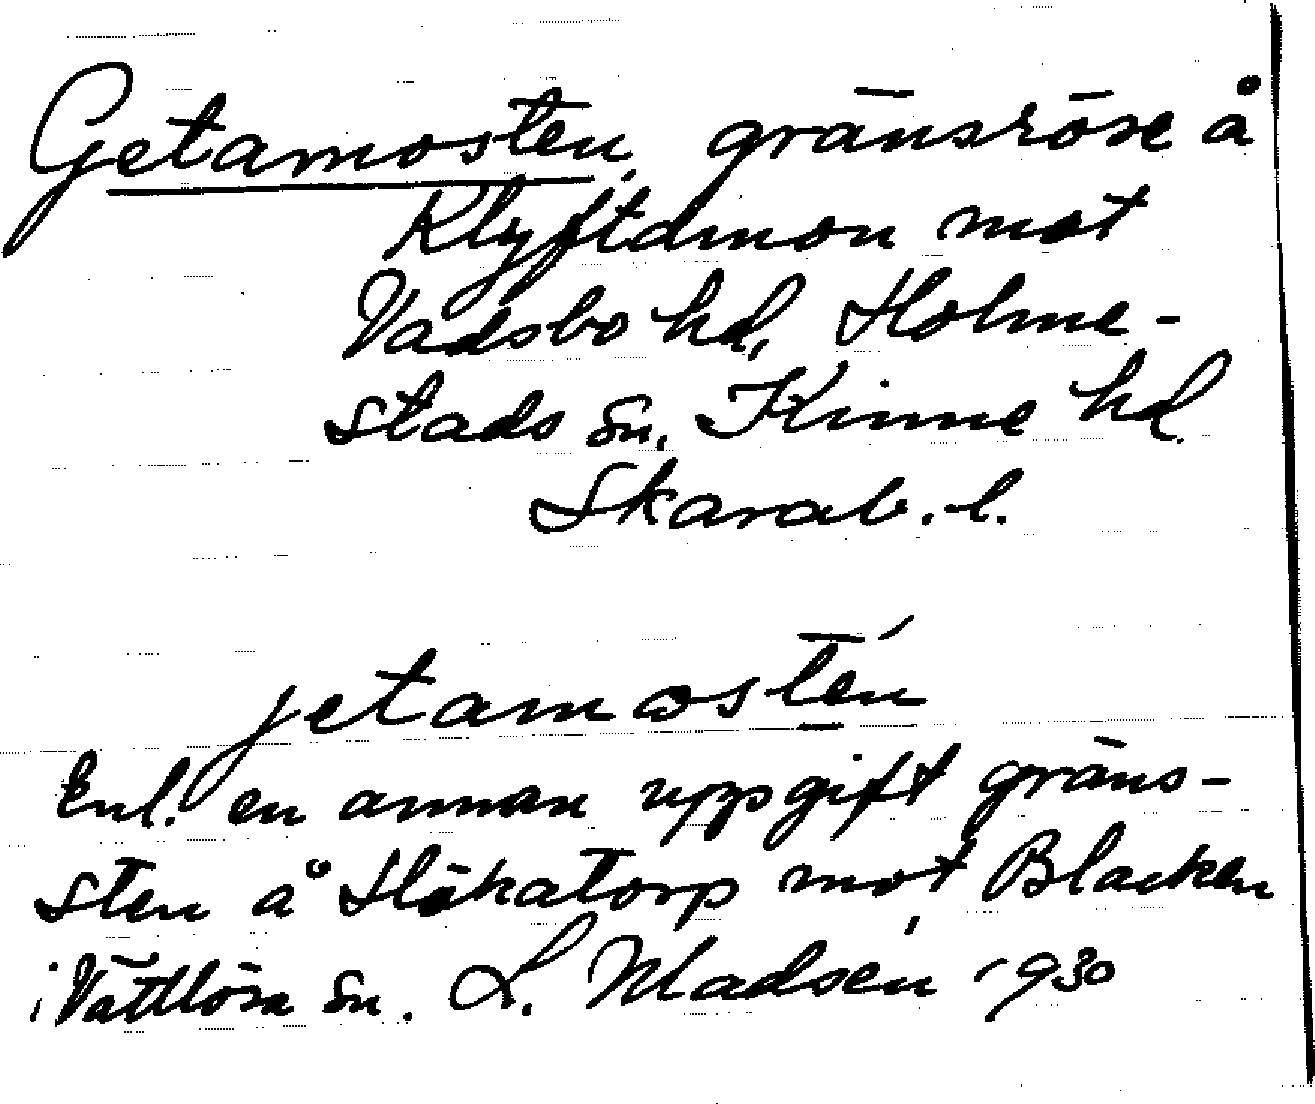 Getamosten, gränsröse å
Klyftamon mot
Vadsbo hd, Holme-
stads sn, Kinne hd.
Skarab. l.
jetamosten
Enl. en annan uppgift gräns-
sten å Hökatorp mot Blacken
i Vättlösa sn. L. Madsén 1930